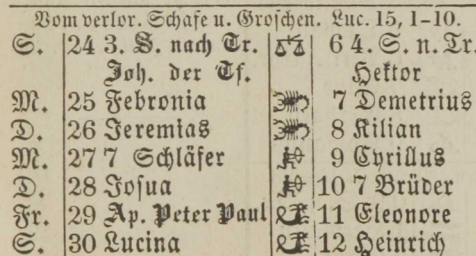 Vom verlor. Schafe u. Groschen. Luc. 15, 1-10.
S. 24 3. S. nach Tr. 6 4. S. n. Tr.
Joh. der Tf. Hektor
M. 25 Febronia 7 Demetrius
D. 26 Jeremias 8 Kilian
M. 27 7 Schläfer 9 Cyrillus
D. 28 Josua 10 7 Brüder
Fr. 29 Ap. Peter Paul 11 Eleonore
S. 30 Lucina 12 Heinrich